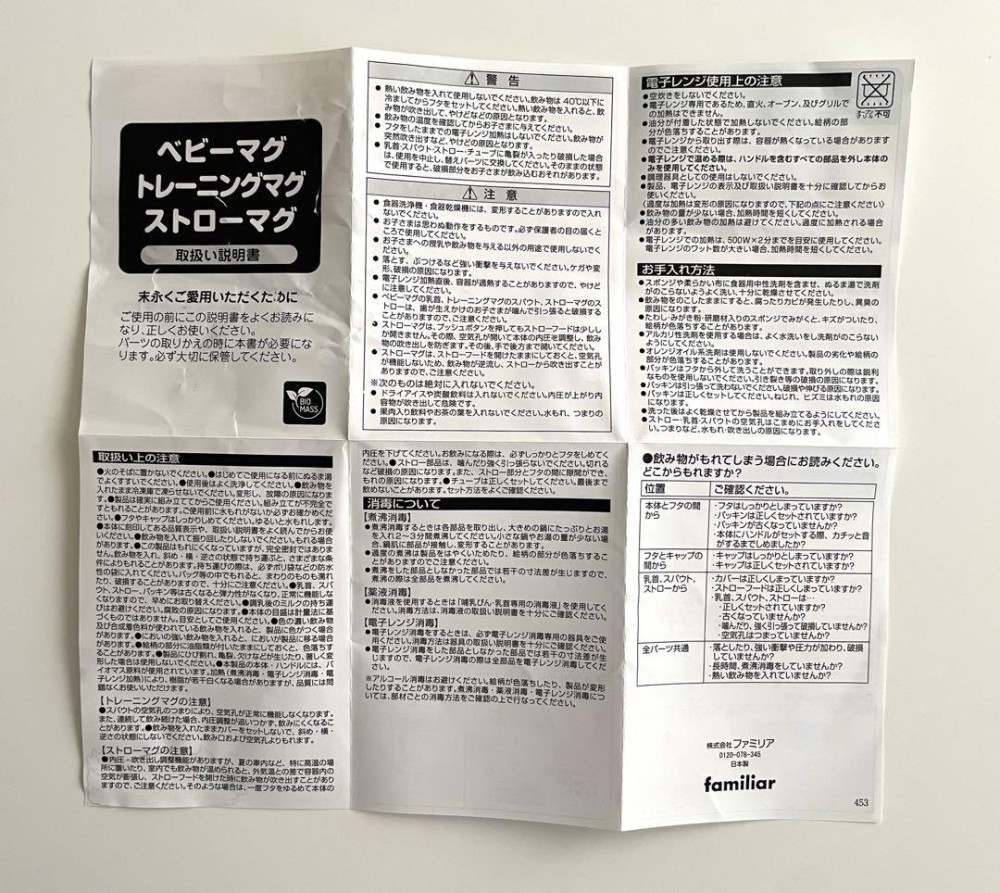 ベビーマグ
トレーニングマグ
ストローマグ
取扱い説明書
末永くご愛用いただくために
ご使用の前にこの説明書をよくお読みに
なり、正しくお使いください。
パーツの取りかえの時に本書が必要にな
ります。必ず大切に保管してください。
BIO
MASS
警告
● 熱い飲み物を入れて使用しないでください。飲み物は 40℃以下に
冷ましてからフタをセットしてください。熱い飲み物を入れると、飲
み物が吹き出して、やけどなどの原因となります。
● 飲み物の温度を確認してからお子さまに与えてください。
● フタをしたままでの電子レンジ加熱はしないでください。飲み物が
突然吹き出すなど、やけどの原因になります。
● 乳首・スパウト・ストロー・チューブに亀裂が入ったり破損した場合
は、使用を中止し、替えパーツに交換してください。そのままの状態
で使用すると、破損部分をお子さまが飲み込むおそれがあります。
注意
● 食器洗浄機・食器乾燥機には、変形することがありますので入れ
ないでください。
● お子さまは思わぬ動作をするものです。必ず保護者の目の届くと
ころで使用してください。
● お子さまへの授乳や飲み物を与える以外の用途で使用しないでく
ださい。
● 落とす、ぶつけるなど強い衝撃を与えないでください。ケガや変
形、破損の原因になります。
● 電子レンジ加熱直後、容器が過熱することがありますので、やけど
に注意してください。
● ベビーマグの乳首、トレーニングマグのスパウト、ストローマグのス
トローは、歯が生えかけのお子さまが噛んで引っ張ると破損する
ことがありますので、ご注意ください。
● ストローマグは、プッシュボタンを押してもストローフードは少しし
か開きません。その際、空気孔が開いて本体の内圧を調整し、飲み
物の吹き出しを防ぎます。その後、手で後方まで開いてください。
● ストローマグは、ストローフードを開けたままにしておくと、空気孔
が機能しないため、飲み物が逆流し、ストローから吹き出すことが
ありますので、ご注意ください。
※次のものは絶対に入れないでください。
● ドライアイスや炭酸飲料は入れないでください。内圧が上がり内
容物が吹き出して危険です。
● 果肉入り飲料やお茶の葉を入れないでください。水もれ、つまりの
原因になります。
電子レンジ使用上の注意
不可
●空炊きをしないでください。
●電子レンジ専用であるため、直火、オーブン、及びグリルで
の加熱はできません。
●油分が付着した状態で加熱しないでください。絵柄の部
分が色落ちすることがあります。
●電子レンジから取り出す際は、容器が熱くなっている場合があります
のでご注意ください。
●電子レンジで温める際は、ハンドルを含むすべての部品を外し本体の
みを使用してください。
●調理器具としての使用はしないでください。
●製品、電子レンジの表示及び取扱い説明書を十分に確認してからお
使いください。
(過度な加熱は変形の原因になりますので、下記の点にご注意ください)
●飲み物の量が少ない場合、加熱時間を短くしてください。
●油分の多い飲み物の加熱は避けてください。過度に加熱される場合
があります。
●電子レンジでの加熱は、500W×2分までを目安に使用してください。
電子レンジのワット数が大きい場合、加熱時間を短くしてください。
お手入れ方法
●スポンジや柔らかい布に食器用中性洗剤を含ませ、ぬるま湯で洗剤
がのこらないようよく洗い、十分に乾燥させてください。
●飲み物をのこしたままにすると、腐ったりカビが発生したりし、異臭の
原因になります。
●たわし・みがき粉・研磨材入りのスポンジでみがくと、キズがついたり、
絵柄が色落ちすることがあります。
●アルカリ性洗剤を使用する場合は、よく水洗いをし洗剤がのこらない
ようにしてください。
●オレンジオイル系洗剤は使用しないでください。製品の劣化や絵柄の
部分が色落ちすることがあります。
●パッキンはフタから外して洗うことができます。取り外しの際は鋭利
なものを使用しないでください。引き裂き等の破損の原因になります。
●パッキンは引っ張って洗わないでください。破損や伸びる原因になります。
●パッキンは正しくセットしてください。ねじれ、ヒズミは水もれの原因
になります。
●洗った後はよく乾燥させてから製品を組み立てるようにしてください。
●ストロー・乳首・スパウトの空気孔はこまめにお手入れをしてくださ
い。つまりなど、水もれ・吹き出しの原因になります。
取扱い上の注意
●火のそばに置かないでください。●はじめてご使用になる前にぬるま湯
でよくすすいでください。●使用後はよく洗浄してください。●飲み物を
入れたまま冷凍庫で凍らせないでください。変形し、故障の原因になりま
す。●製品は確実に組み立ててからご使用ください。組み立てが不完全で
すともれることがあります。ご使用前に水もれがないか必ずお確かめくだ
さい。●フタやキャップはしっかりしめてください。ゆるいと水もれします。
●本体に刻印してある品質表示や、取扱い説明書をよく読んでからお使
いください。●飲み物を入れて振り回したりしないでください。もれる場合
があります。●この製品はもれにくくなっていますが、完全密封ではありま
せん。飲み物を入れ、斜め・横・逆さの状態で持ち運ぶと、さまざまな条
件によりもれることがあります。持ち運びの際は、必ずポリ袋などの防水
性の袋に入れてください。バッグ等の中でもれると、まわりのものも濡れ
たり、破損することがありますので、十分にご注意ください。●乳首、スパ
ウト、ストロー、パッキン等は古くなると弾力性がなくなり、正常に機能しな
くなりますので、早めにお取り替えください。●調乳後のミルクの持ち運
びはお避けください。腐敗の原因になります。●本体の目盛は計量法に基
づくものではありません。目安としてご使用ください。●色の濃い飲み物
及び合成着色料が使われている飲み物を入れると、製品に色がつく場合
があります。●においの強い飲み物を入れると、においが製品に移る場合
があります。●絵柄の部分に油脂類が付いたままにしておくと、色落ちす
ることがあります。●製品にひび割れ、亀裂、欠けなどが生じたり、著しく変
形した場合は使用しないでください。●本製品の本体・ハンドルには、バ
イオマス原料が使用されています。加熱(煮沸消毒・電子レンジ消毒・電
子レンジ加熱)により、樹脂が若干白くなる場合がありますが、品質には問
題なくお使いいただけます。
【トレーニングマグの注意】
●スパウトの空気孔のつまりにより、空気孔が正常に機能しなくなります。
また、連続して飲み続けた場合、内圧調整が追いつかず、飲みにくくなるこ
とがあります。●飲み物を入れたままカバーをセットしないで、斜め・横・
逆さの状態にしないでください。飲み口および空気孔よりもれます。
【ストローマグの注意】
●内圧・吹き出し調整機能がありますが、夏の車内など、特に高温の場
所に置いたり、室内でも飲み物が温められると、外気温との差で容器内の
空気が膨張し、ストローフードを開けた時に飲み物が吹き出すことがあり
ますので、ご注意ください。そのような場合は、一度フタをゆるめて本体の
内圧を下げてください。お飲みになる際は、必ずしっかりとフタをしめてく
ださい。●ストロー部品は、噛んだり強く引っ張らないでください。切れる
など破損の原因になります。また、ストロー部分とフタの間に隙間ができ、
もれの原因になります。●チューブは正しくセットしてください。最後まで
飲めないことがあります。セット方法をよくご確認ください。
消毒について
【煮沸消毒】
●煮沸消毒するときは各部品を取り出し、大きめの鍋にたっぷりとお湯
を入れ2~3分間煮沸してください。小さな鍋やお湯の量が少ない場
合、鍋肌に部品が接触し、変形することがあります。
●過度の煮沸は製品をはやくいためたり、絵柄の部分が色落ちするこ
とがありますのでご注意ください。
●煮沸をした部品としなかった部品では若干の寸法差が生じますので、
煮沸の際は全部品を煮沸してください。
【薬液消毒】
●消毒液を使用するときは「哺乳びん・乳首専用の消毒液」を使用してく
ださい。消毒方法は、消毒液の取扱い説明書を十分にご確認ください。
【電子レンジ消毒】
●電子レンジ消毒をするときは、必ず電子レンジ消毒専用の器具をご使
用ください。消毒方法は器具の取扱い説明書を十分にご確認ください。
●電子レンジ消毒をした部品としなかった部品では若干の寸法差が生
じますので、電子レンジ消毒の際は全部品を電子レンジ消毒してくだ
さい。
※アルコール消毒はお避けください。絵柄が色落ちしたり、製品が変形
したりすることがあります。煮沸消毒・薬液消毒・電子レンジ消毒につ
いては、部材ごとの消毒方法をご確認の上で行なってください。
●飲み物がもれてしまう場合にお読みください。
どこからもれますか?
位置 ご確認ください。
本体とフタの間
から
・フタはしっかりとしまっていますか?
・パッキンは正しくセットされていますか?
・パッキンが古くなっていませんか?
・本体にハンドルがセットする際、カチッと音
がするまでしめましたか?
フタとキャップの
間から
・キャップはしっかりとしまっていますか?
・キャップは正しくセットされていますか?
乳首、スパウト、
ストローから
・カバーは正しくしまっていますか?
・ストローフードは正しくしまっていますか?
・乳首、スパウト、ストローは…
・正しくセットされていますか?
・古くなっていませんか?
・噛んだり、強く引っ張って破損していませんか?
・空気孔はつまっていませんか?
全パーツ共通
・落としたり、強い衝撃や圧力が加わり、破損
していませんか?
・長時間、煮沸消毒をしていませんか?
・熱い飲み物を入れていませんか?
株式会社ファミリア
0120-078-345
日本製
familiar
453